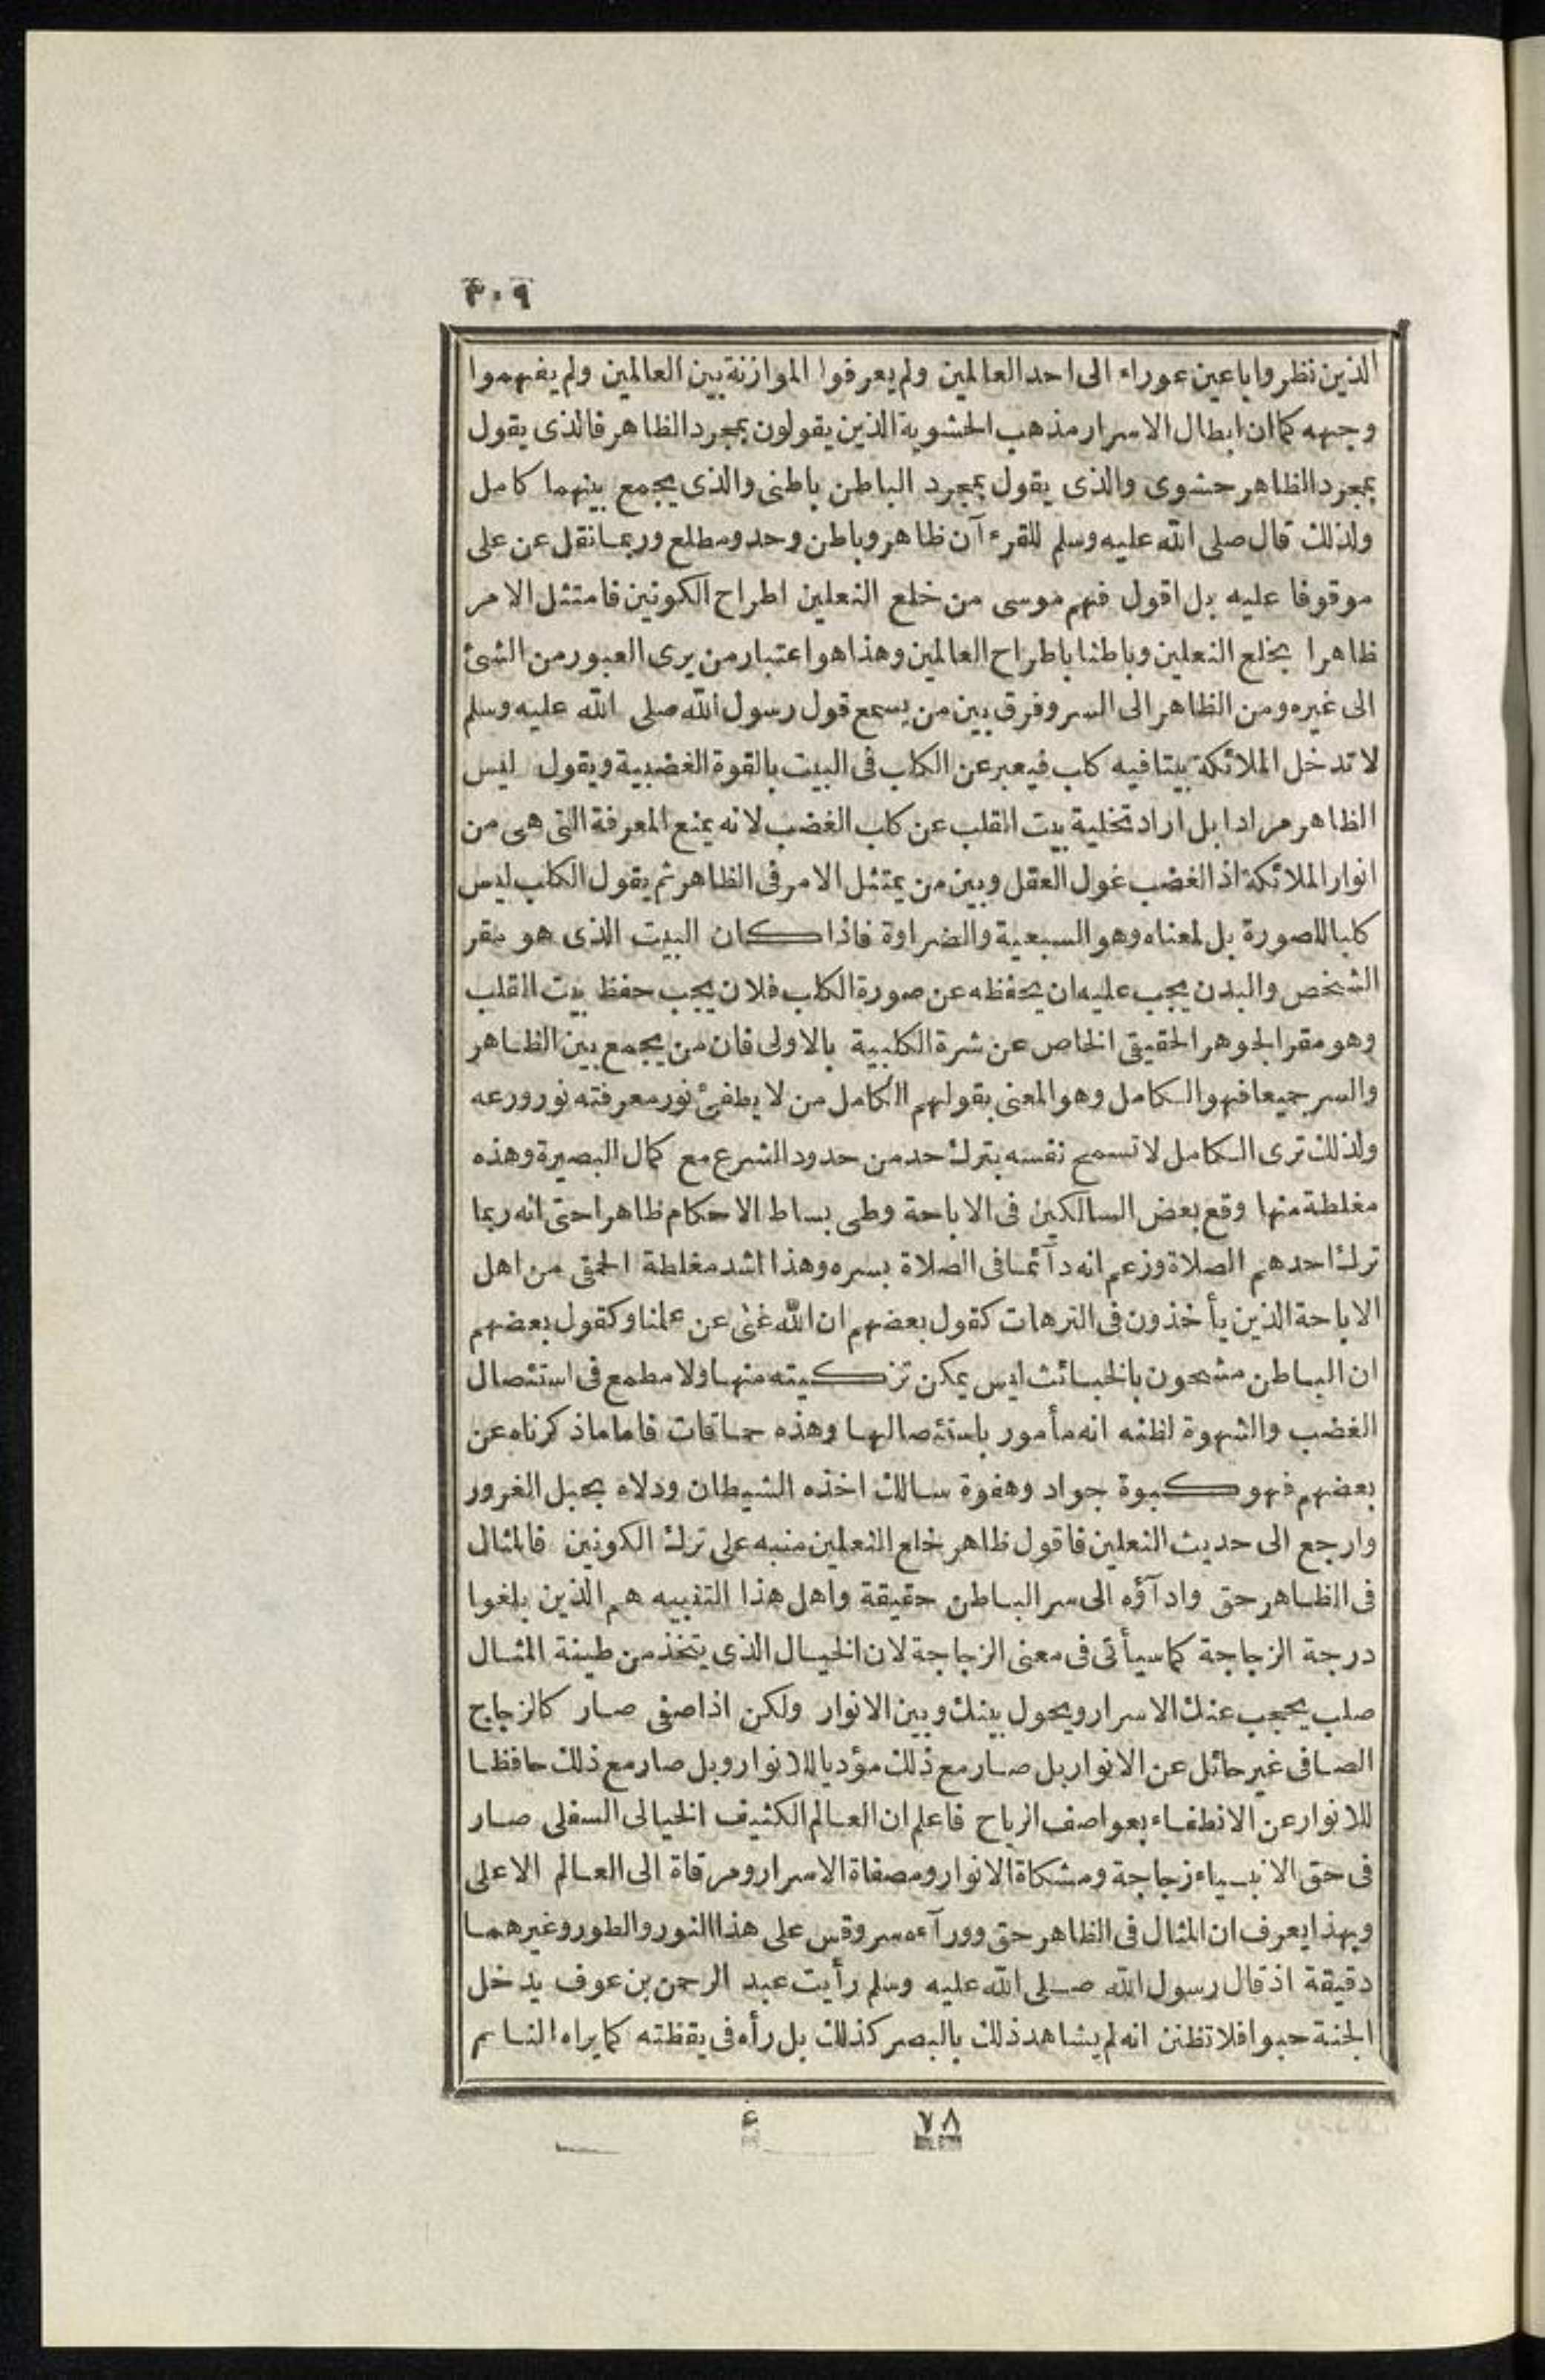 ٣٠٩
الذين نظروا باعين عوراء الى احد العالمين ولم يعرفوا الموازنة بين العالمين ولم يفهموا
وجهه كما ان ابطال الاسرار مذهب الحشوية الذين يقولون بمجرد الظاهر فالذى يقول
بمجرد الظاهر حشوى والذى يقول بمجرد الباطن باطنى والذى يجمع بينهما كامل
ولذلك قال صلى الله عليه وسلم للقرءآن ظاهر وباطن وحد ومطلع وربما نقل عن على
موقوفا عليه بل اقول فهم موسى من خلع النعلين اطراح الكونين فامتثل الامر
ظاهرا بخلع النعلين وباطنا باطراح العالمين وهذا هو اعتبار من يرى العبور من الشئ
الى غيره ومن الظاهر الى السر وفرق بين من يسمع قول رسول الله صلى الله عليه وسلم
لا تدخل الملائكة بيتا فيه كلب فيعبر عن الكلب فى البيت بالقوة الغضبية ويقول ليس
الظاهر مرادا بل اراد تخلية بيت القلب عن كلب الغضب لانه يمنع المعرفة التى هى من
انوار الملائكة اذ الغضب غول العقل وبين من يمتثل الامر فى الظاهر ثم يقول الكلب ليس
كلبا للصورة بل لمعناه وهو السبعية والضراوة فاذا كان البيت الذى هو مقر
الشخص والبدن يجب عليه ان يحفظه عن صورة الكلب فلان يجب حفظ بيت القلب
وهو مقر الجوهر الحقيقى الخاص عن شرة الكلبية بالاولى فان من يجمع بين الظاهر
والسر جميعا فهو الكامل وهو المعنى بقولهم الكامل من لا يطفئ نور معرفته نور ورعه
ولذلك ترى الكامل لا تسمح نفسه بترك حد من حدود الشرع مع كمال البصيرة وهذه
مغلطة منها وقع بعض السالكين فى الاباحة وطى بساط الاحكام ظاهرا حتى انه ربما
ترك احدهم الصلاة وزعم انه دآئما فى الصلاة بسره وهذا اشد مغلطة الحمقى من اهل
الاباحة الذين يأخذون فى الترهات كقول بعضهم ان الله غنى عن عملنا وكقول بعضهم
ان الباطن مشحون بالخبائث ليس يمكن تزكيته منها ولا مطمع فى استئصال
الغضب والشهوة لظنه انه مأمور باستئصالها وهذه حماقات فاما ماذكرناه عن
بعضهم فهو كبوة جواد وهفوة سالك اخذه الشيطان ودلاه بحبل الغرور
وارجع الى حديث النعلين فاقول ظاهر خلع النعلين منبه على ترك الكونين فالمثال
فى الظاهر حق وادآؤه الى سر الباطن حقيقة واهل هذا التنبيه هم الذين بلغوا
درجة الزجاجة كما سيأتى فى معنى الزجاجة لان الخيال الذى يتخذ من طينة المثال
صلب يحجب عنك الاسرار ويحول بينك وبين الانوار ولكن اذا صفى صار كالزجاج
الصافى غير حائل عن الانوار بل صار مع ذلك مؤديا للانوار وبل صار مع ذلك حافظا
للانوار عن الانطفاء بعواصف الرياح فاعلم ان العالم الكثيف الخيالى السفلى صار
فى حق الانبياء زجاجة ومشكاة الانوار ومصفاة الاسرار ومرقاة الى العالم الاعلى
وبهذا يعرف ان المثال فى الظاهر حق وورآءه سر وقس على هذا النور والطور وغيرهما
دقيقة اذ قال رسول الله صلى الله عليه وسلم رأيت عبد الرحمن بن عوف يدخل
الجنة حبوا فلا تظنن انه لم يشاهد ذلك بالبصر كذلك بل رأه فى يقظته كما يراه النائم
٧٨ ع